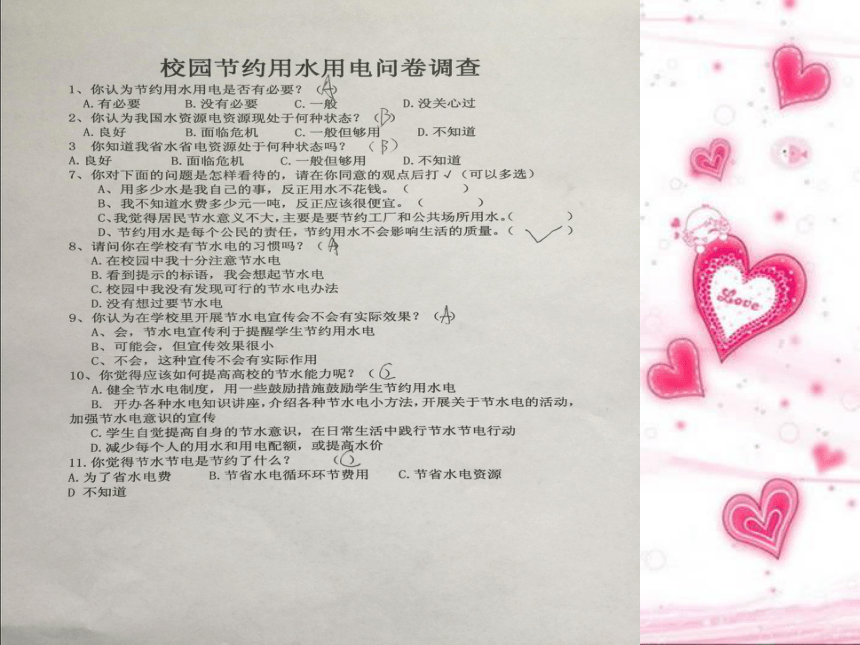 校园节约用水用电问卷调查
1、你认为节约用水用电是否有必要？（A）
A.有必要 B.没有必要 C.一般 D.没关心过
2、你认为我国水资源电资源现处于何种状态？（B）
A.良好 B.面临危机 C.一般但够用 D.不知道
3 你知道我省水省电资源处于何种状态吗？（B）
A.良好 B.面临危机 C.一般但够用 D.不知道
7、你对下面的问题是怎样看待的，请在你同意的观点后打√（可以多选）
A、用多少水是我自己的事，反正用水不花钱。（ ）
B、我不知道水费多少元一吨，反正应该很便宜。（ ）
C、我觉得居民节水意义不大，主要是要节约工厂和公共场所用水。（ ）
D、节约用水是每个公民的责任，节约用水不会影响生活的质量。（ ✓ ）
8、请问你在学校有节水电的习惯吗？（A）
A.在校园中我十分注意节水电
B.看到提示的标语，我会想起节水电
C.校园中我没有发现可行的节水电办法
D.没有想过要节水电
9、你认为在学校里开展节水电宣传会不会有实际效果？（A）
A、会，节水电宣传利于提醒学生节约用水电
B、可能会，但宣传效果很小
C、不会，这种宣传不会有实际作用
10、你觉得应该如何提高高校的节水能力呢？（C）
A.健全节水电制度，用一些鼓励措施鼓励学生节约用水电
B. 开办各种水电知识讲座，介绍各种节水电小方法，开展关于节水电的活动，
加强节水电意识的宣传
C.学生自觉提高自身的节水意识，在日常生活中践行节水节电行动
D.减少每个人的用水和用电配额，或提高水价
11.你觉得节水节电是节约了什么？（C）
A.为了省水电费 B.节省水电循环环节费用 C.节省水电资源
D 不知道
Love